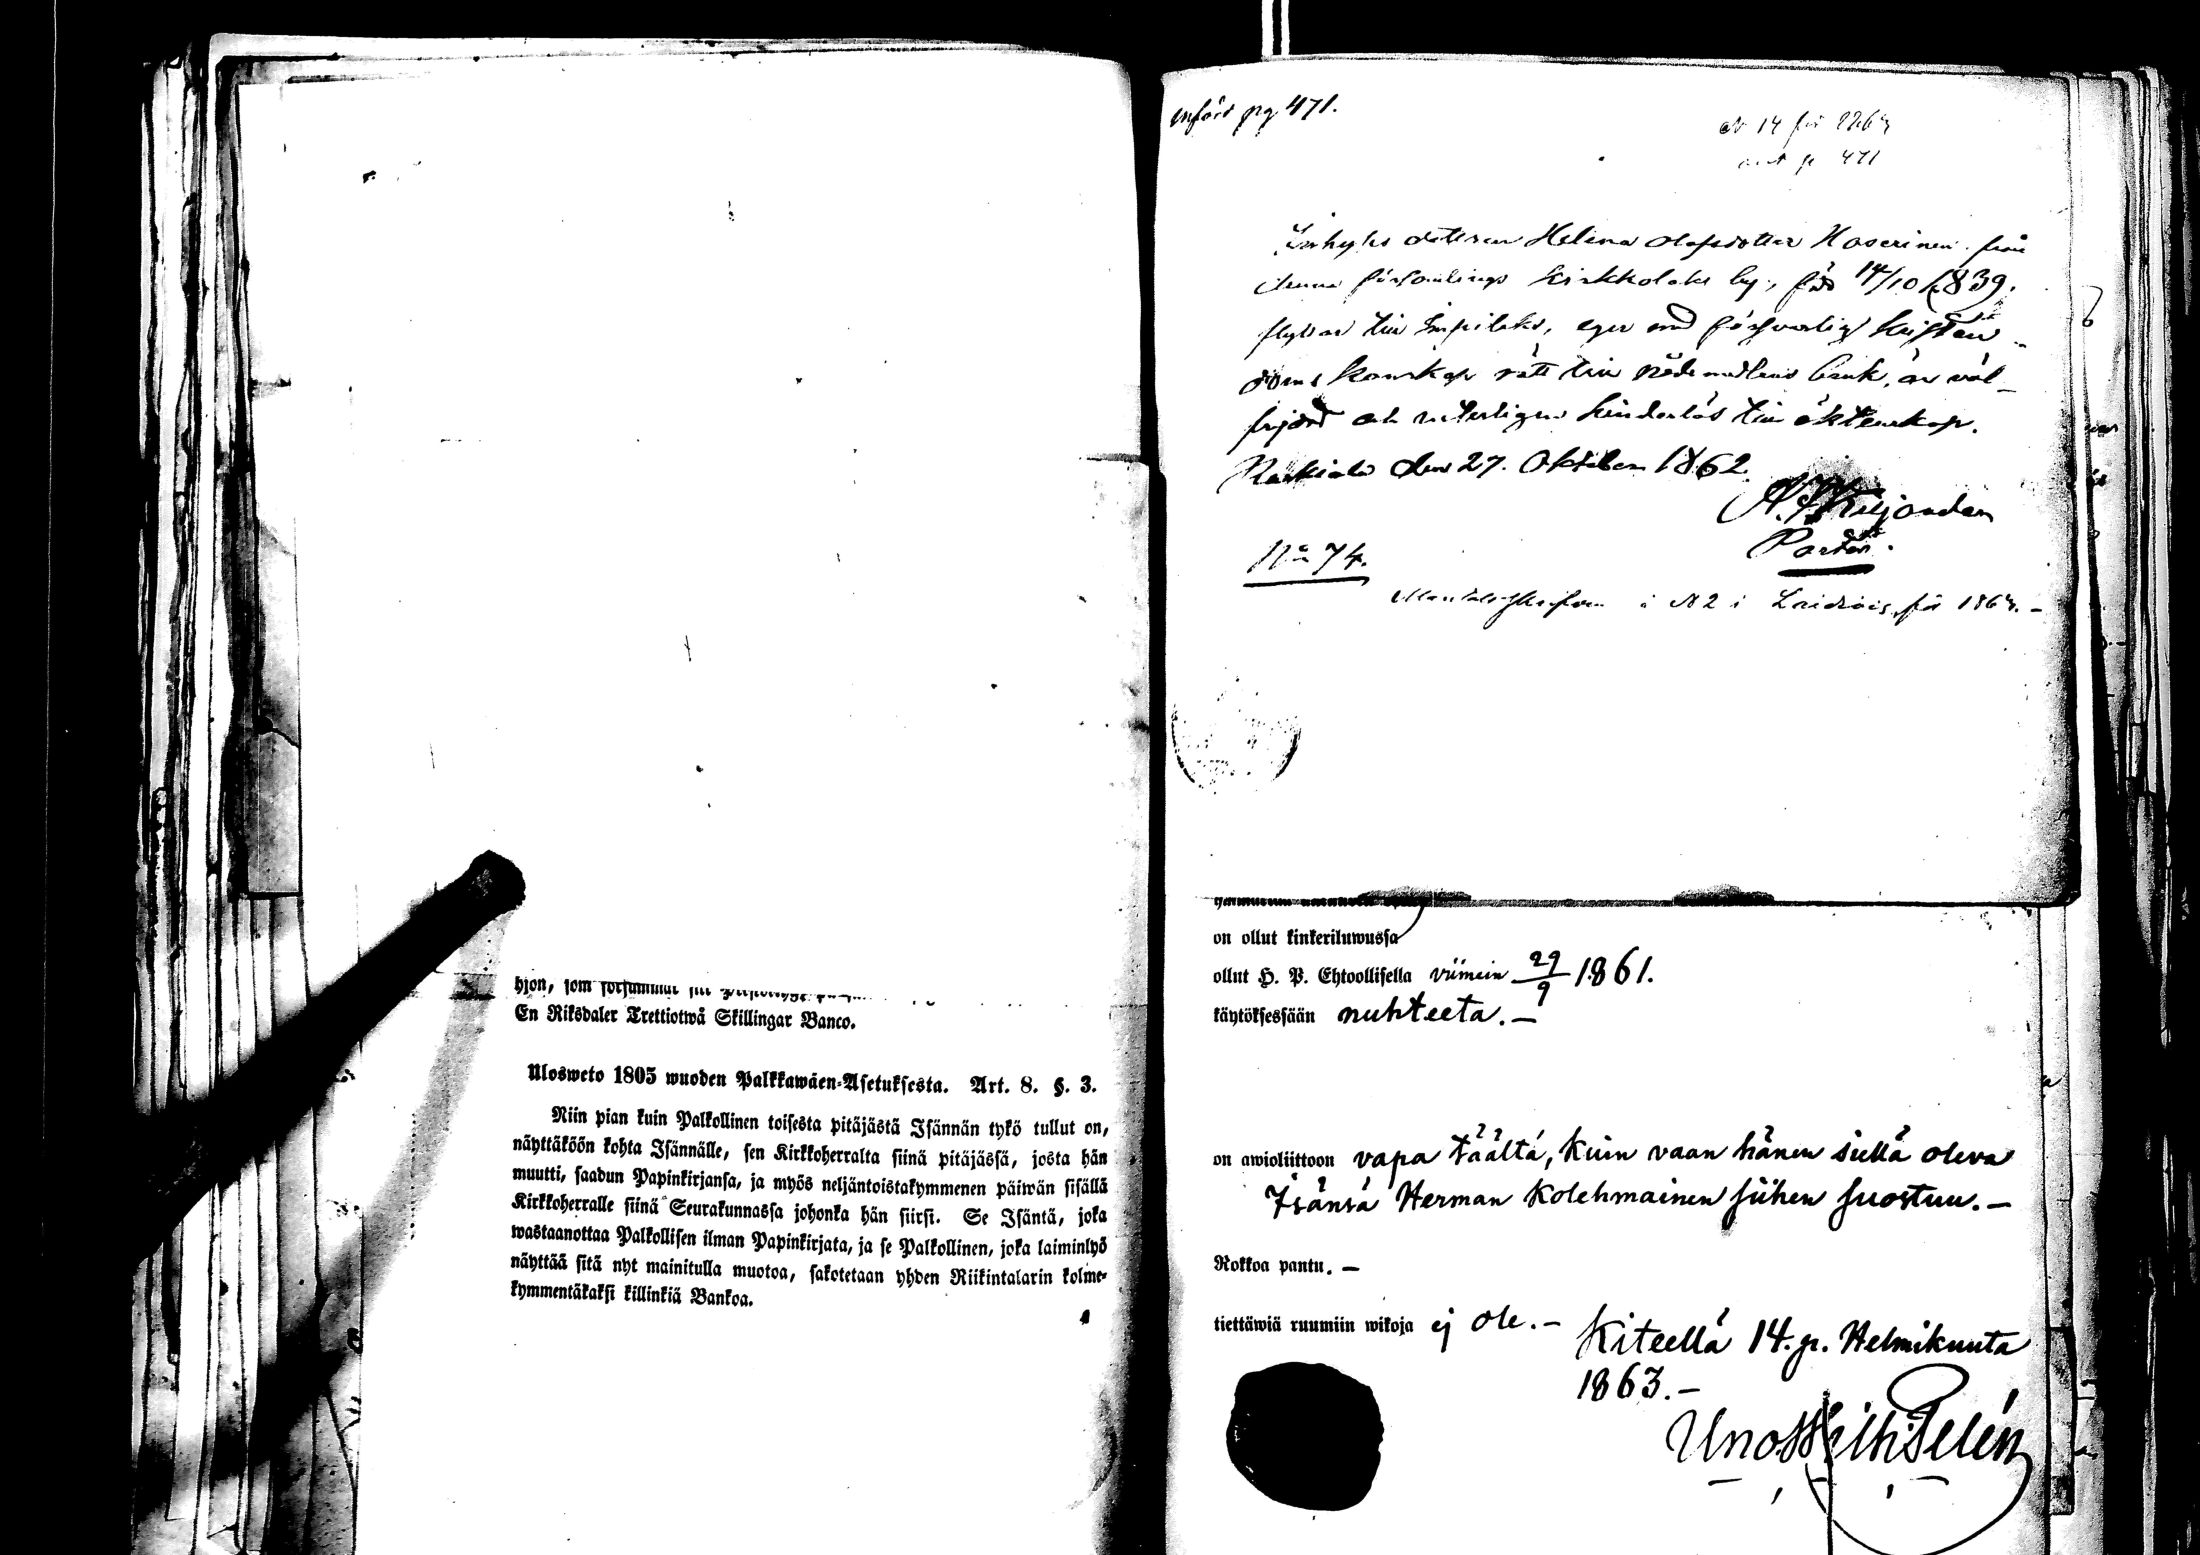 hjon, som försummar
En Riksdaler Trettiotwå Skillingar Banco.
Ulosweto 1805 wuoden Palkkawäen-Asetuksesta. Art. 8. §. 3.
Niin pian kuin Palkollinen toisesta pitäjästä Isännän tykö tullut on,
näyttäköön kohta Isännälle, sen Kirkkoherralta siinä pitäjässä, josta hän
muutti, saadun Papinkirjansa, ja myös neljäntoistakymmenen päiwän sisällä
Kirkkoherralle siinä Seurakunnassa johonka hän siirsi. Se Isäntä, joka
wastaanottaa Palkollisen ilman Papinkirjata, ja se Palkollinen, joka laiminlyö
näyttää sitä nyt mainitulla muotoa, sakotetaan yhden Riikintalarin kolme-
kymmentäkaksi killinkiä Bankoa.
införd pg 471.
N 14 för
471
Inhyses dottren Helena Olofsdotter Hoserinen från
denna församlings Kirkkolaks by, född 14/10 1839.
flyttar till Impilaks, eger med försvarlig kristen-
doms kunskap rätt till nådemedlens bruk, är väl-
frejdad och veterligen hinderlös till äktenskap.
Ruskiala den 27. Oktober 1862.
Pastor.
No 74.
i N 2 i för 186
on ollut kinkeriluwussa
ollut H. P. Ehtoollisella viimein 29/9 1861.
käytöksessään nuhteeta. —
on awioliittoon vapa täältä, kuin vaan hänen siellä oleva
Isänsä Herman Kolehmainen siihen suostuu. —
Rokkoa pantu. —
tiettäwiä ruumiin wikoja ej ole. —
Kiteellä 14. p. Helmikuuta
1863. —
Uno Wilh: